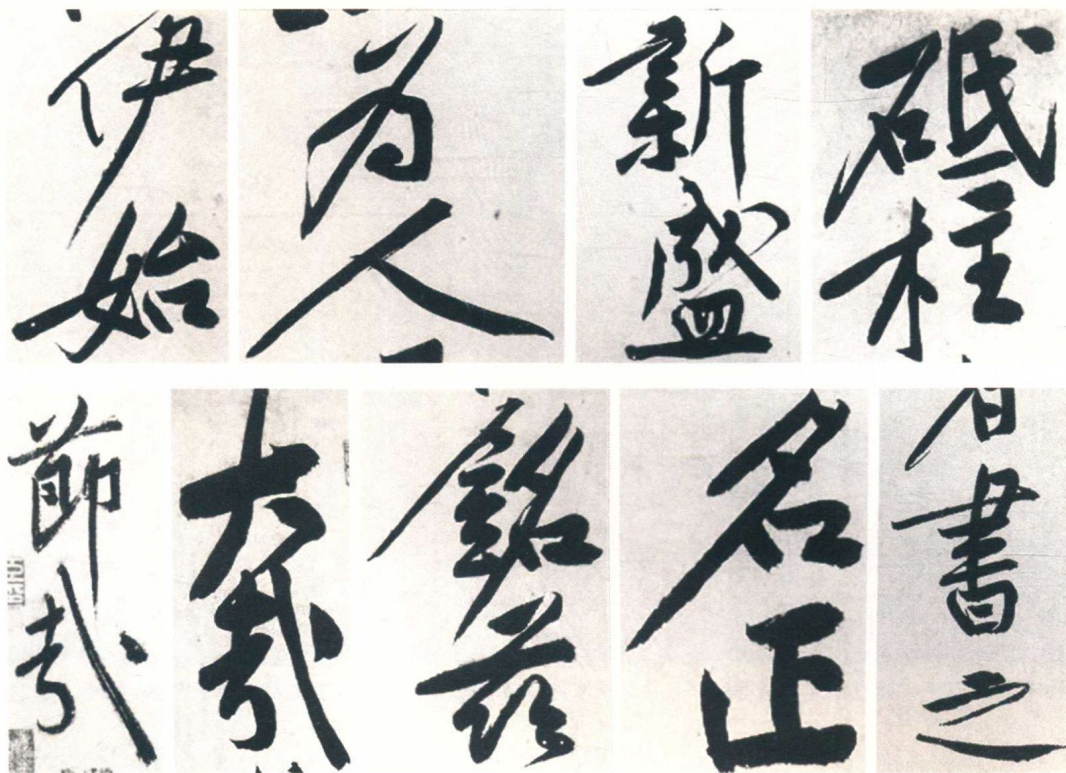 伊始
为人
新盛
砥柱
節哉
大哉
銘茲
名正
書之